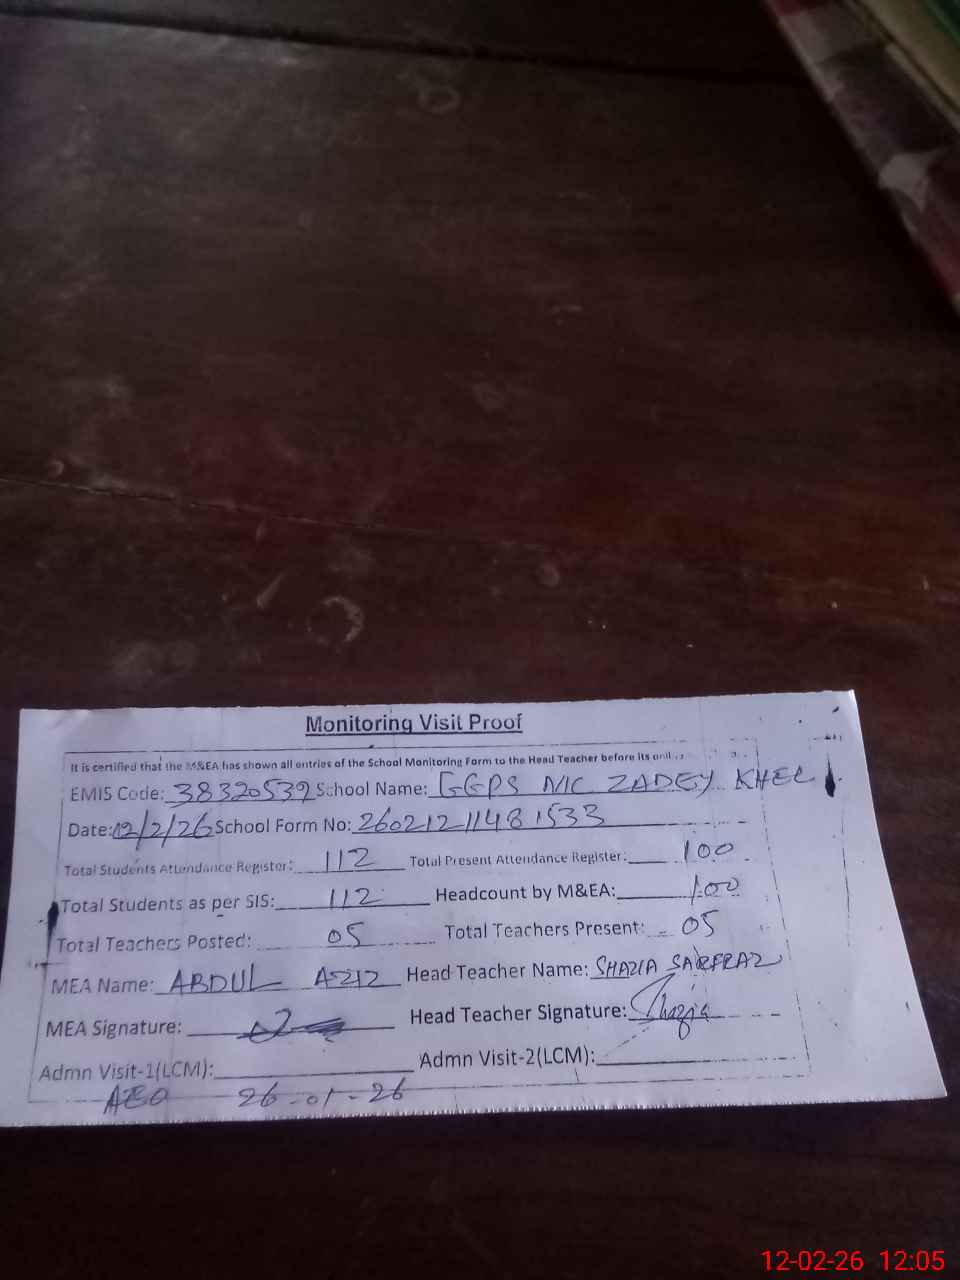 Monitoring Visit Proof
It is certified that the M&EA has shown all entries of the School Monitoring Form to the Head Teacher before its
EMIS Code: 38320539 School Name: GGPS NIC ZADEY KHEL
Date: 12/2/26 School Form No: 26021211481533
Total Students Attendance Register: 112 Total Present Attendance Register: 100
Total Students as per SIS: 112 Headcount by M&EA: 100
Total Teachers Posted: 05 Total Teachers Present: 05
MEA Name: ABDUL AZIZ Head Teacher Name: SHAZIA SARFRAZ
MEA Signature: Head Teacher Signature: Shazia
Admn Visit-1(LCM): Admn Visit-2(LCM):
AEO 26-01-26
12-02-26 12:05